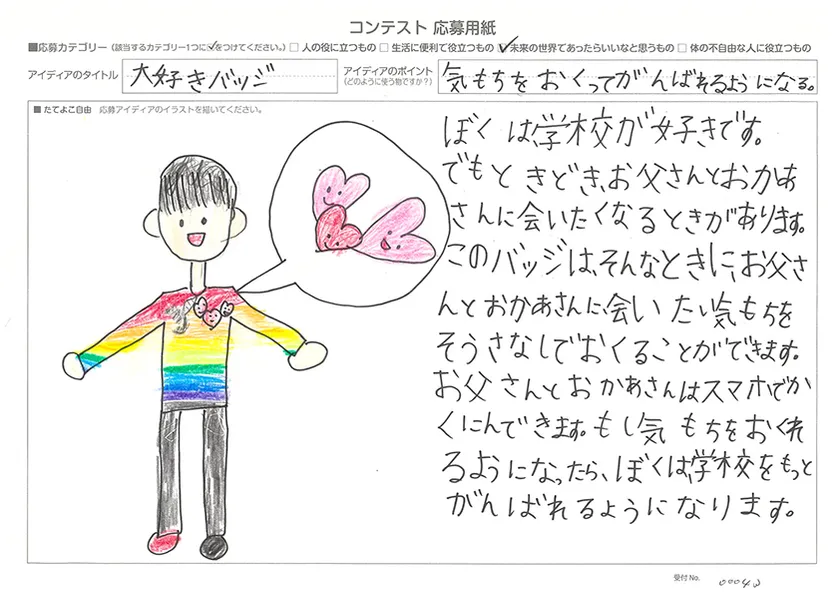 コンテスト 応募用紙
■応募カテゴリー (該当するカテゴリー1つに✓をつけてください。) □ 人の役に立つもの □ 生活に便利で役立つもの ☑ 未来の世界であったらいいなと思うもの □ 体の不自由な人に役立つもの
アイディアのタイトル 大好きバッジ
アイディアのポイント (どのように使う物ですか?) 気もちをおくってがんばれるようになる。
■ たてよこ自由 応募アイディアのイラストを描いてください。
ぼくは、学校が好きです。
でもときどき、お父さんとおかあ
さんに会いたくなるときがあります。
このバッジは、そんなときに、お父さ
んとおかあさんに、会いたい気もちを
そうさなしでおくることができます。
お父さんとおかあさんはスマホでか
くにんできます。もし気もちをおくれ
るようになったら、ぼくは、学校をもっと
がんばれるようになります。
受付 No.